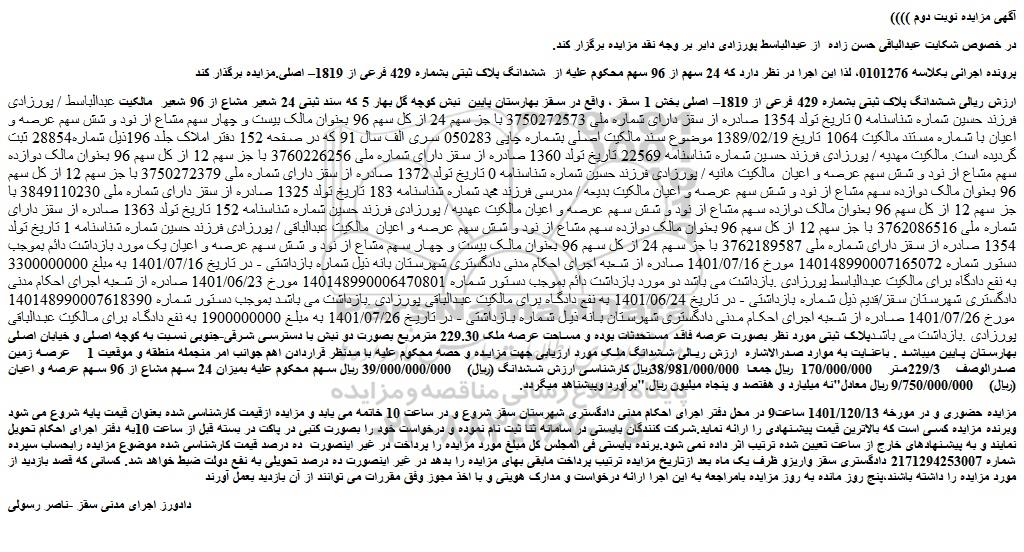 آگهی مزایده نوبت دوم ))))
در خصوص شکایت عبدالباقی حسن زاده از عبدالباسط پورزادی دایر بر وجه نقد مزایده برگزار کند.
پرونده اجرائی بکلاسه 0101276، لذا این اجرا در نظر دارد که 24 سهم از 96 سهم محکوم علیه از ششدانگ پلاک ثبتی بشماره 429 فرعی از 1819– اصلی.مزایده برگذار کند
ارزش ریالی ششدانگ پلاک ثبتی بشماره 429 فرعی از 1819– اصلی بخش 1 سقز ، واقع در سقز بهارستان پایین نبش کوچه گل بهار 5 که سند ثبتی 24 شعیر مشاع از 96 شعیر مالکیت عبدالباسط / پورزادی
فرزند حسین شماره شناسنامه 0 تاریخ تولد 1354 صادره از سقز دارای شماره ملی 3750272573 با جز سهم 24 از کل سهم 96 بعنوان مالک بیست و چهار سهم مشاع از نود و شش سهم عرصه و
اعیان با شماره مستند مالکیت 1064 تاریخ 1389/02/19 موضوع سند مالکیت اصلی بشماره چاپی 050283 سری الف سال 91 که در صفحه 152 دفتر املاک جلد 196ذیل شماره28854 ثبت
گردیده است. مالکیت مهدیه / پورزادی فرزند حسین شماره شناسنامه 22569 تاریخ تولد 1360 صادره از سقز دارای شماره ملی 3760226256 با جز سهم 12 از کل سهم 96 بعنوان مالک دوازده
سهم مشاع از نود و شش سهم عرصه و اعیان مالکیت هانیه / پورزادی فرزند حسین شماره شناسنامه 0 تاریخ تولد 1372 صادره از سقز دارای شماره ملی 3750272379 با جز سهم 12 از کل سهم
96 بعنوان مالک دوازده سهم مشاع از نود و شش سهم عرصه و اعیان مالکیت بدیعه / مدرسی فرزند محمد شماره شناسنامه 183 تاریخ تولد 1325 صادره از سقز دارای شماره ملی 3849110230 با
جز سهم 12 از کل سهم 96 بعنوان مالک دوازده سهم مشاع از نود و شش سهم عرصه و اعیان مالکیت عهدیه / پورزادی فرزند حسین شماره شناسنامه 152 تاریخ تولد 1363 صادره از سقز دارای
شماره ملی 3762086516 با جز سهم 12 از کل سهم 96 بعنوان مالک دوازده سهم مشاع از نود و شش سهم عرصه و اعیان مالکیت عبدالباقی / پورزادی فرزند حسین شماره شناسنامه 1 تاریخ تولد
1354 صادره از سقز دارای شماره ملی 3762189587 با جز سهم 24 از کل سهم 96 بعنوان مالک بیست و چهار سهم مشاع از نود و شش سهم عرصه و اعیان یک مورد بازداشت دائم بموجب
دستور شماره 140148990007165072 مورخ 1401/07/16 صادره از شعبه اجرای احکام مدنی دادگستری شهرستان بانه ذیل شماره بازداشتی - در تاریخ 1401/07/16 به مبلغ 3300000000
به نفع دادگاه برای مالکیت عبدالباسط پورزادی .بازداشت می باشد دو مورد بازداشت دائم بموجب دستور شماره 140148990006470801 مورخ 1401/06/23 صادره از شعبه اجرای احکام مدنی
دادگستری شهرستان سقز/قدیم ذیل شماره بازداشتی - در تاریخ 1401/06/24 به نفع دادگاه برای مالکیت عبدالباقی پورزادی .بازداشت می باشد بموجب دستور شماره 140148990007618390
مورخ 1401/07/26 صادره از شعبه اجرای احکام مدنی دادگستری شهرستان بانه ذیل شماره بازداشتی - در تاریخ 1401/07/26 به مبلغ 1900000000 به نفع دادگاه برای مالکیت عبدالباقی
پورزادی .بازداشت می باشدپلاک ثبتی مورد نظر بصورت عرصه فاقد مستحدثات بوده و مساحت عرصه ملک 229.30 مترمربع بصورت دو نبش با دسترسی شرقی-جنوبی نسبت به کوچه اصلی و خیابان اصلی
بهارستان پایین میباشد . باعنایت به موارد صدرالاشاره ارزش ریالی ششدانگ ملک مورد ارزیابی جهت مزایده و حصه محکوم علیه با مدنظر قراردادن اهم جوانب امر منجمله منطقه و موقعیت 1 عرصه زمین
صدرالوصف 229/3متر 170/000/000 ریال جمعا 38/981/000/000ریال کارشناسی ارزش ششدانگ (ریال) 39/000/000/000 ریال سهم محکوم علیه بمیزان 24 سهم مشاع از 96 سهم عرصه و اعیان
(ریال) 9/750/000/000 ریال معادل"نه میلیارد و هفتصد و پنجاه میلیون ریال."برآورد وپیشنهاد میگردد.
مزایده حضوری و در مورخه 1401/120/13 ساعت9 در محل دفتر اجرای احکام مدنی دادگستری شهرستان سقز شروع و در ساعت 10 خاتمه می یابد و مزایده ازقیمت کارشناسی شده بعنوان قیمت پایه شروع می شود
وبرنده مزایده کسی است که بالاترین قیمت پیشنهادی را ارائه نماید.شرکت کنندگان بایستی در سامانه ثنا ثبت نام نموده و درخواست خود را بصورت کتبی در پاکت در بسته قبل از ساعت 10به دفتر اجرای احکام تحویل
نمایند و به پیشنهادهای خارج از ساعت تعیین شده ترتیب اثر داده نمی شود.برنده بایستی فی المجلس کل مبلغ مورد مزایده را پرداخت در غیر اینصورت ده درصد قیمت کارشناسی شده موضوع مزایده رابحساب سپرده
شماره 2171294253007 دادگستری سقز واریزو ظرف یک ماه بعد ازتاریخ مزایده ترتیب پرداخت مابقی بهای مزایده را بدهد در غیر اینصورت ده درصد تحویلی به نفع دولت ضبط خواهد شد. کسانی که قصد بازدید از
مورد مزایده را داشته باشند،پنج روز مانده به روز مزایده بامراجعه به این اجرا ارائه درخواست و مدارک هویتی و با اخذ مجوز وفق مقررات می توانند از آن بازدید بعمل آورند
دادورز اجرای مدنی سقز -ناصر رسولی